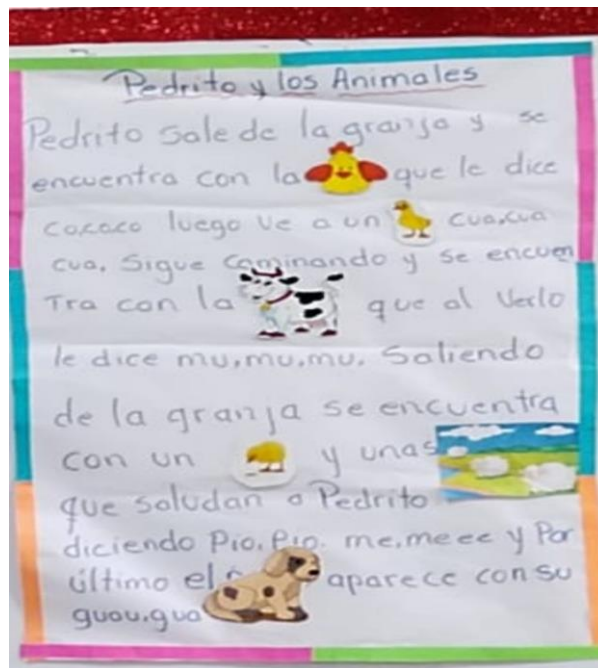 Pedrito y los Animales
Pedrito sale de la granja y se
encuentra con la que le dice
cococo luego ve a un cua,cua
cua. Sigue caminando y se encuen
Tra con la que al verlo
le dice mu,mu,mu. Saliendo
de la granja se encuentra
con un y unas
que saludan a Pedrito
diciendo Pio,Pio. me,meee y Por
último el aparece con su
guau,gua